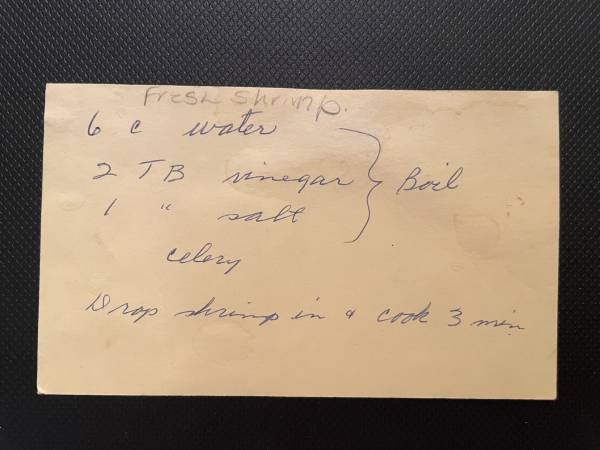 Fresh shrimp.
6 c water
2 TB vinegar } Boil
1 " salt
celery
Drop shrimp in & cook 3 min